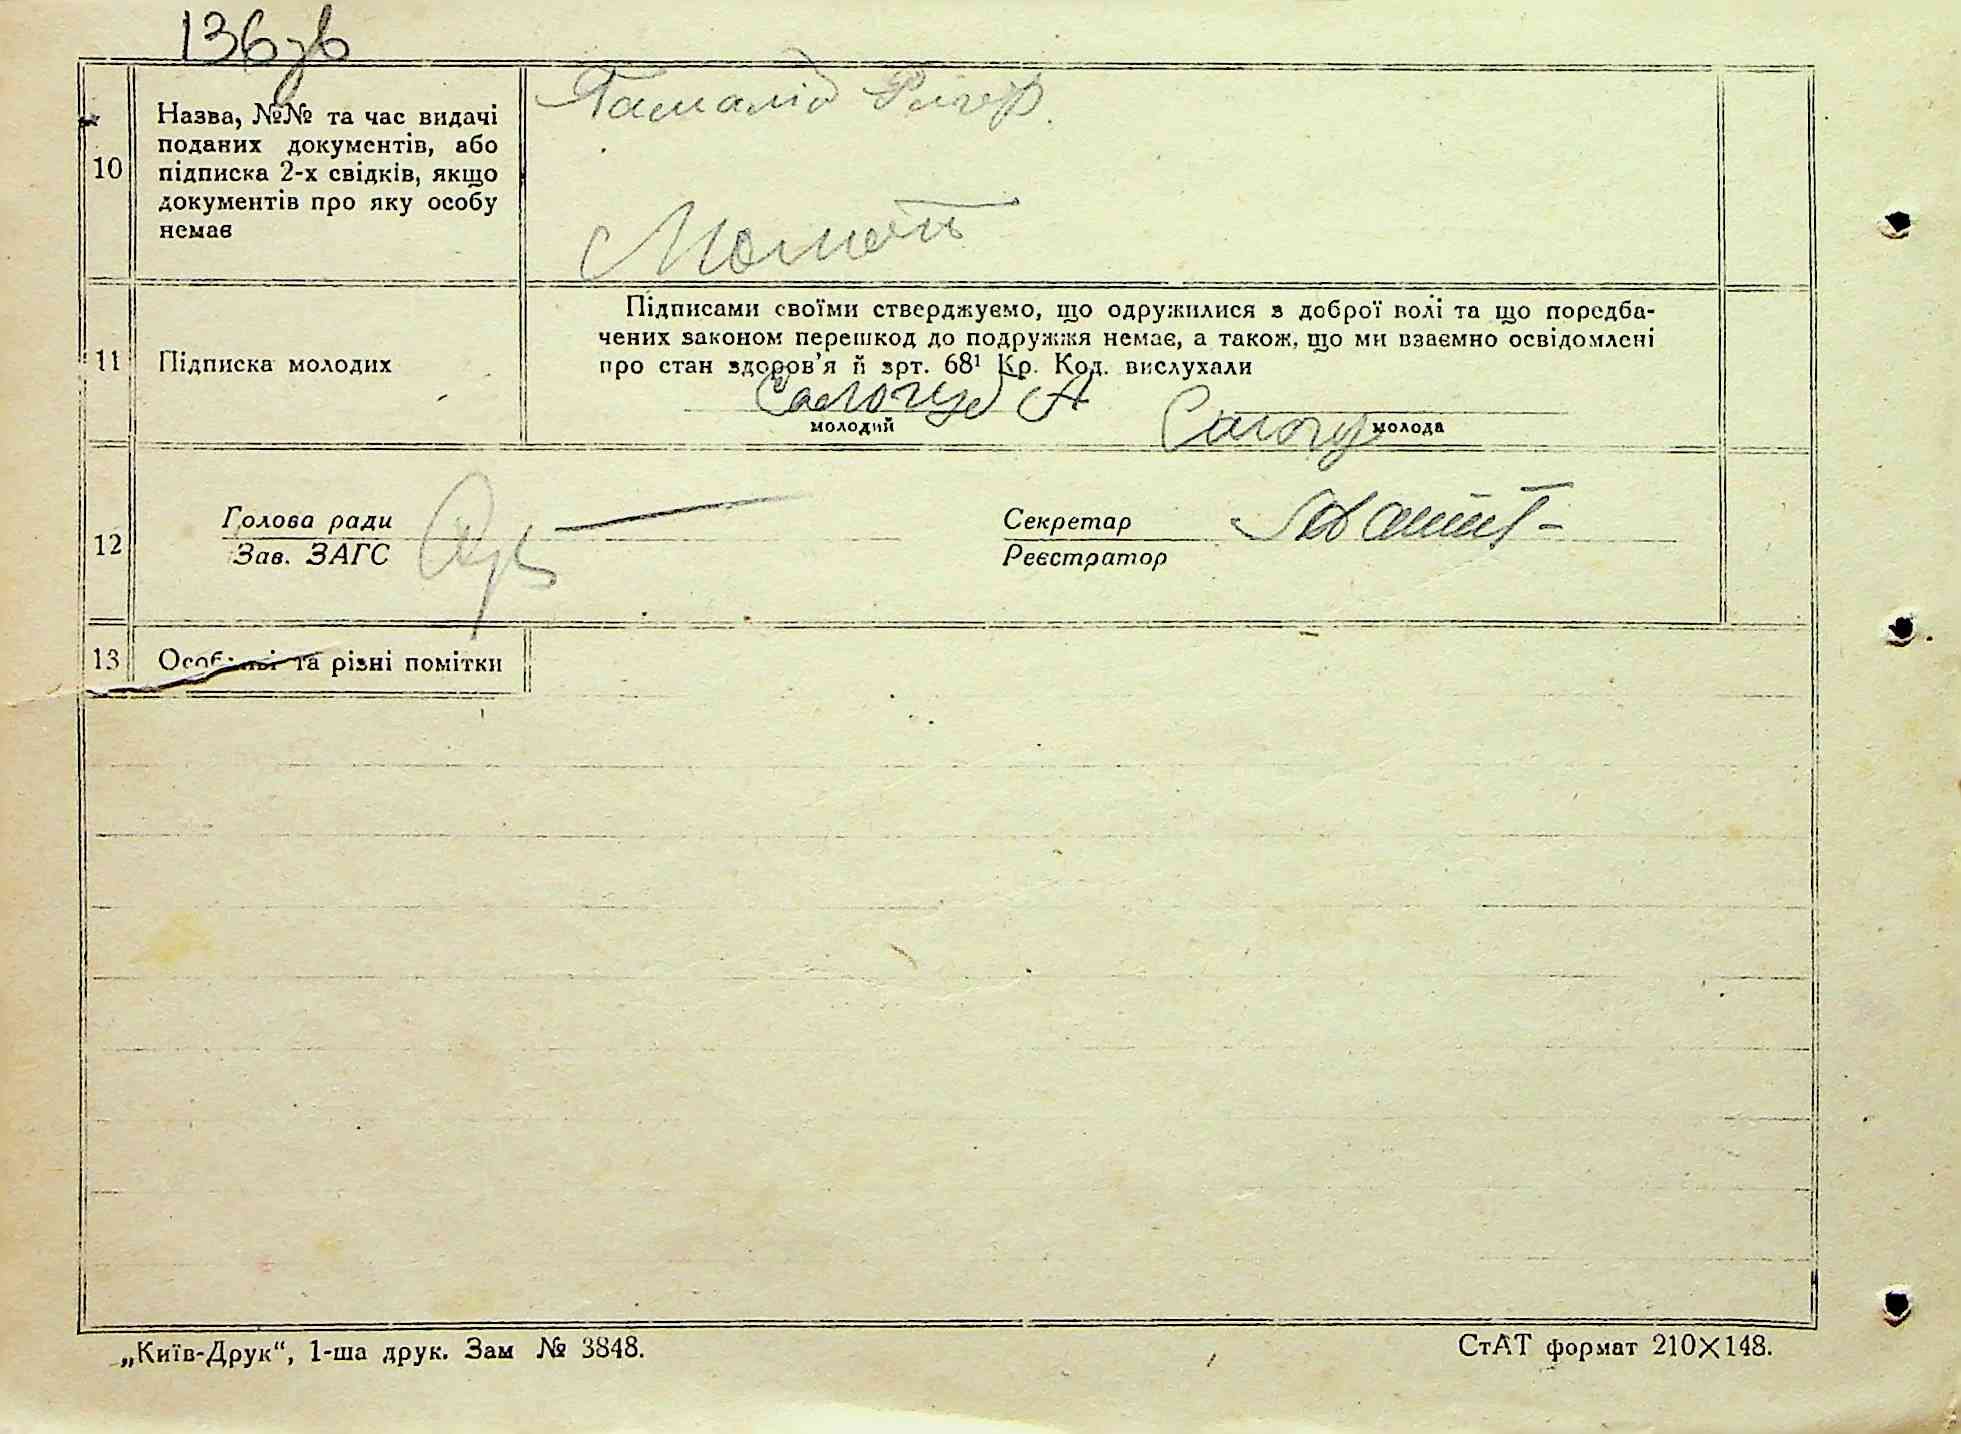 136зв
10
Назва, №№ та час видачі
поданих документів, або
підписка 2-х свідків, якщо
документів про яку особу
немає
11
Підписка молодих
Підписами своїми стверджуємо, що одружилися з доброї волі та що поредба-
чених законом перешкод до подружжя немає, а також, що ми взаємно освідомлені
про стан здоров’я й зрт. 68¹ Кр. Код. вислухали
молодий
молода
12
Голова ради
Зав. ЗАГС
Секретар
Реєстратор
13
Особливі та різні помітки
„Київ-Друк“, 1-ша друк. Зам № 3848.
СтАТ формат 210×148.